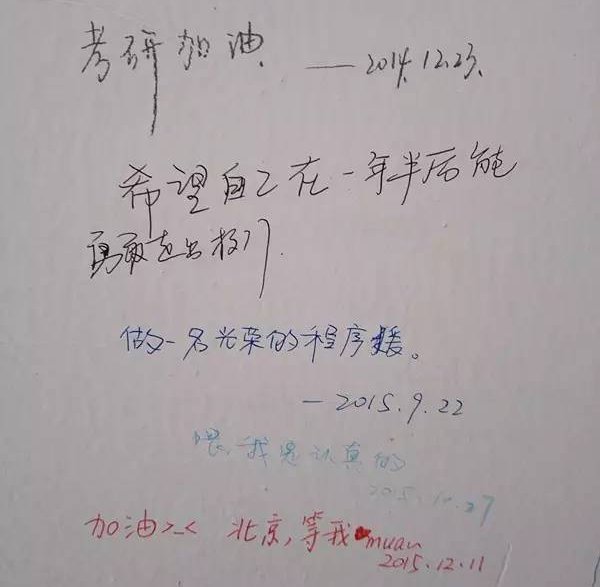 考研加油. —— 2014.12.23.
希望自己在一年半后能
勇敢走出校门.
做一名光荣的程序媛。
— 2015.9.22
嗯,我是认真的
2015.10.27
加油>_< 北京,等我 muan
2015.12.11